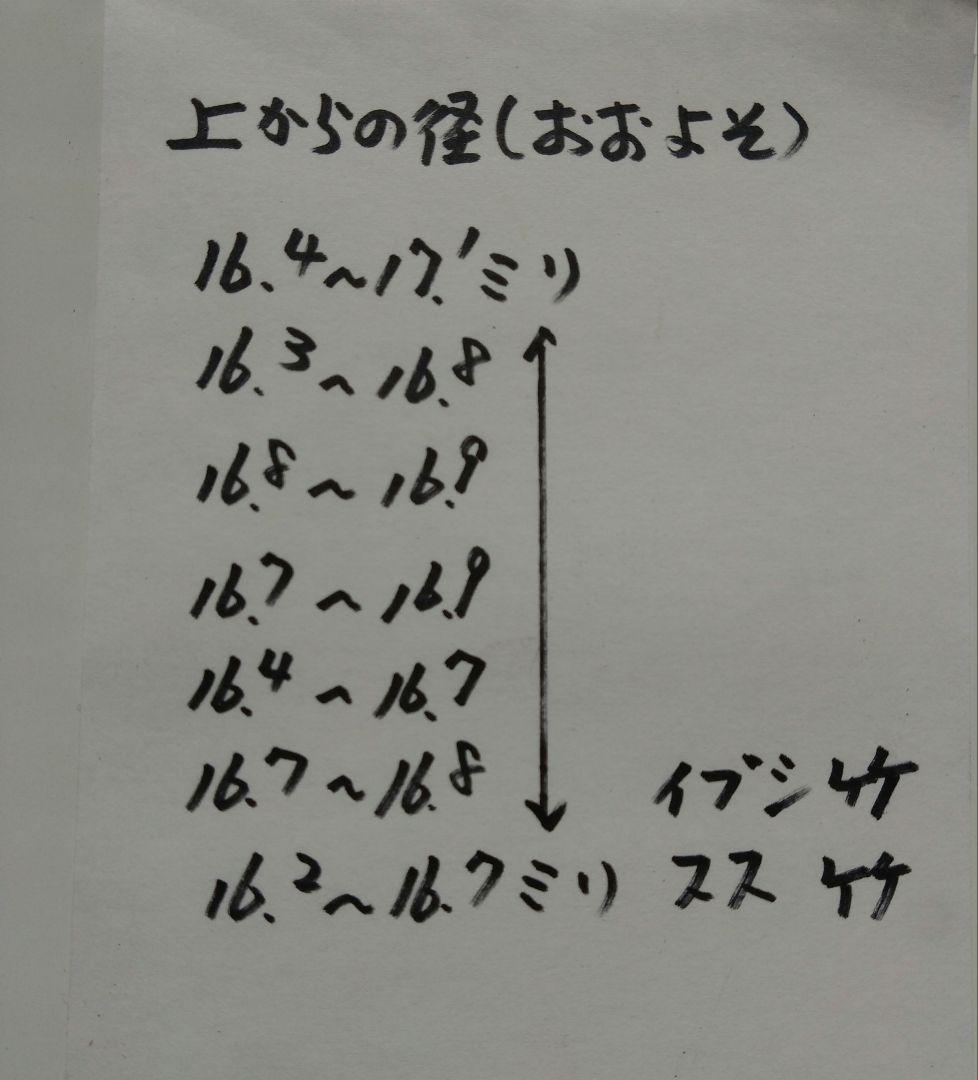 上からの径(おおよそ)
16.4~17.1ミリ
16.3~16.8
16.8~16.9
16.7~16.9
16.4~16.7
16.7~16.8 イブシ竹
16.2~16.7ミリ スス竹